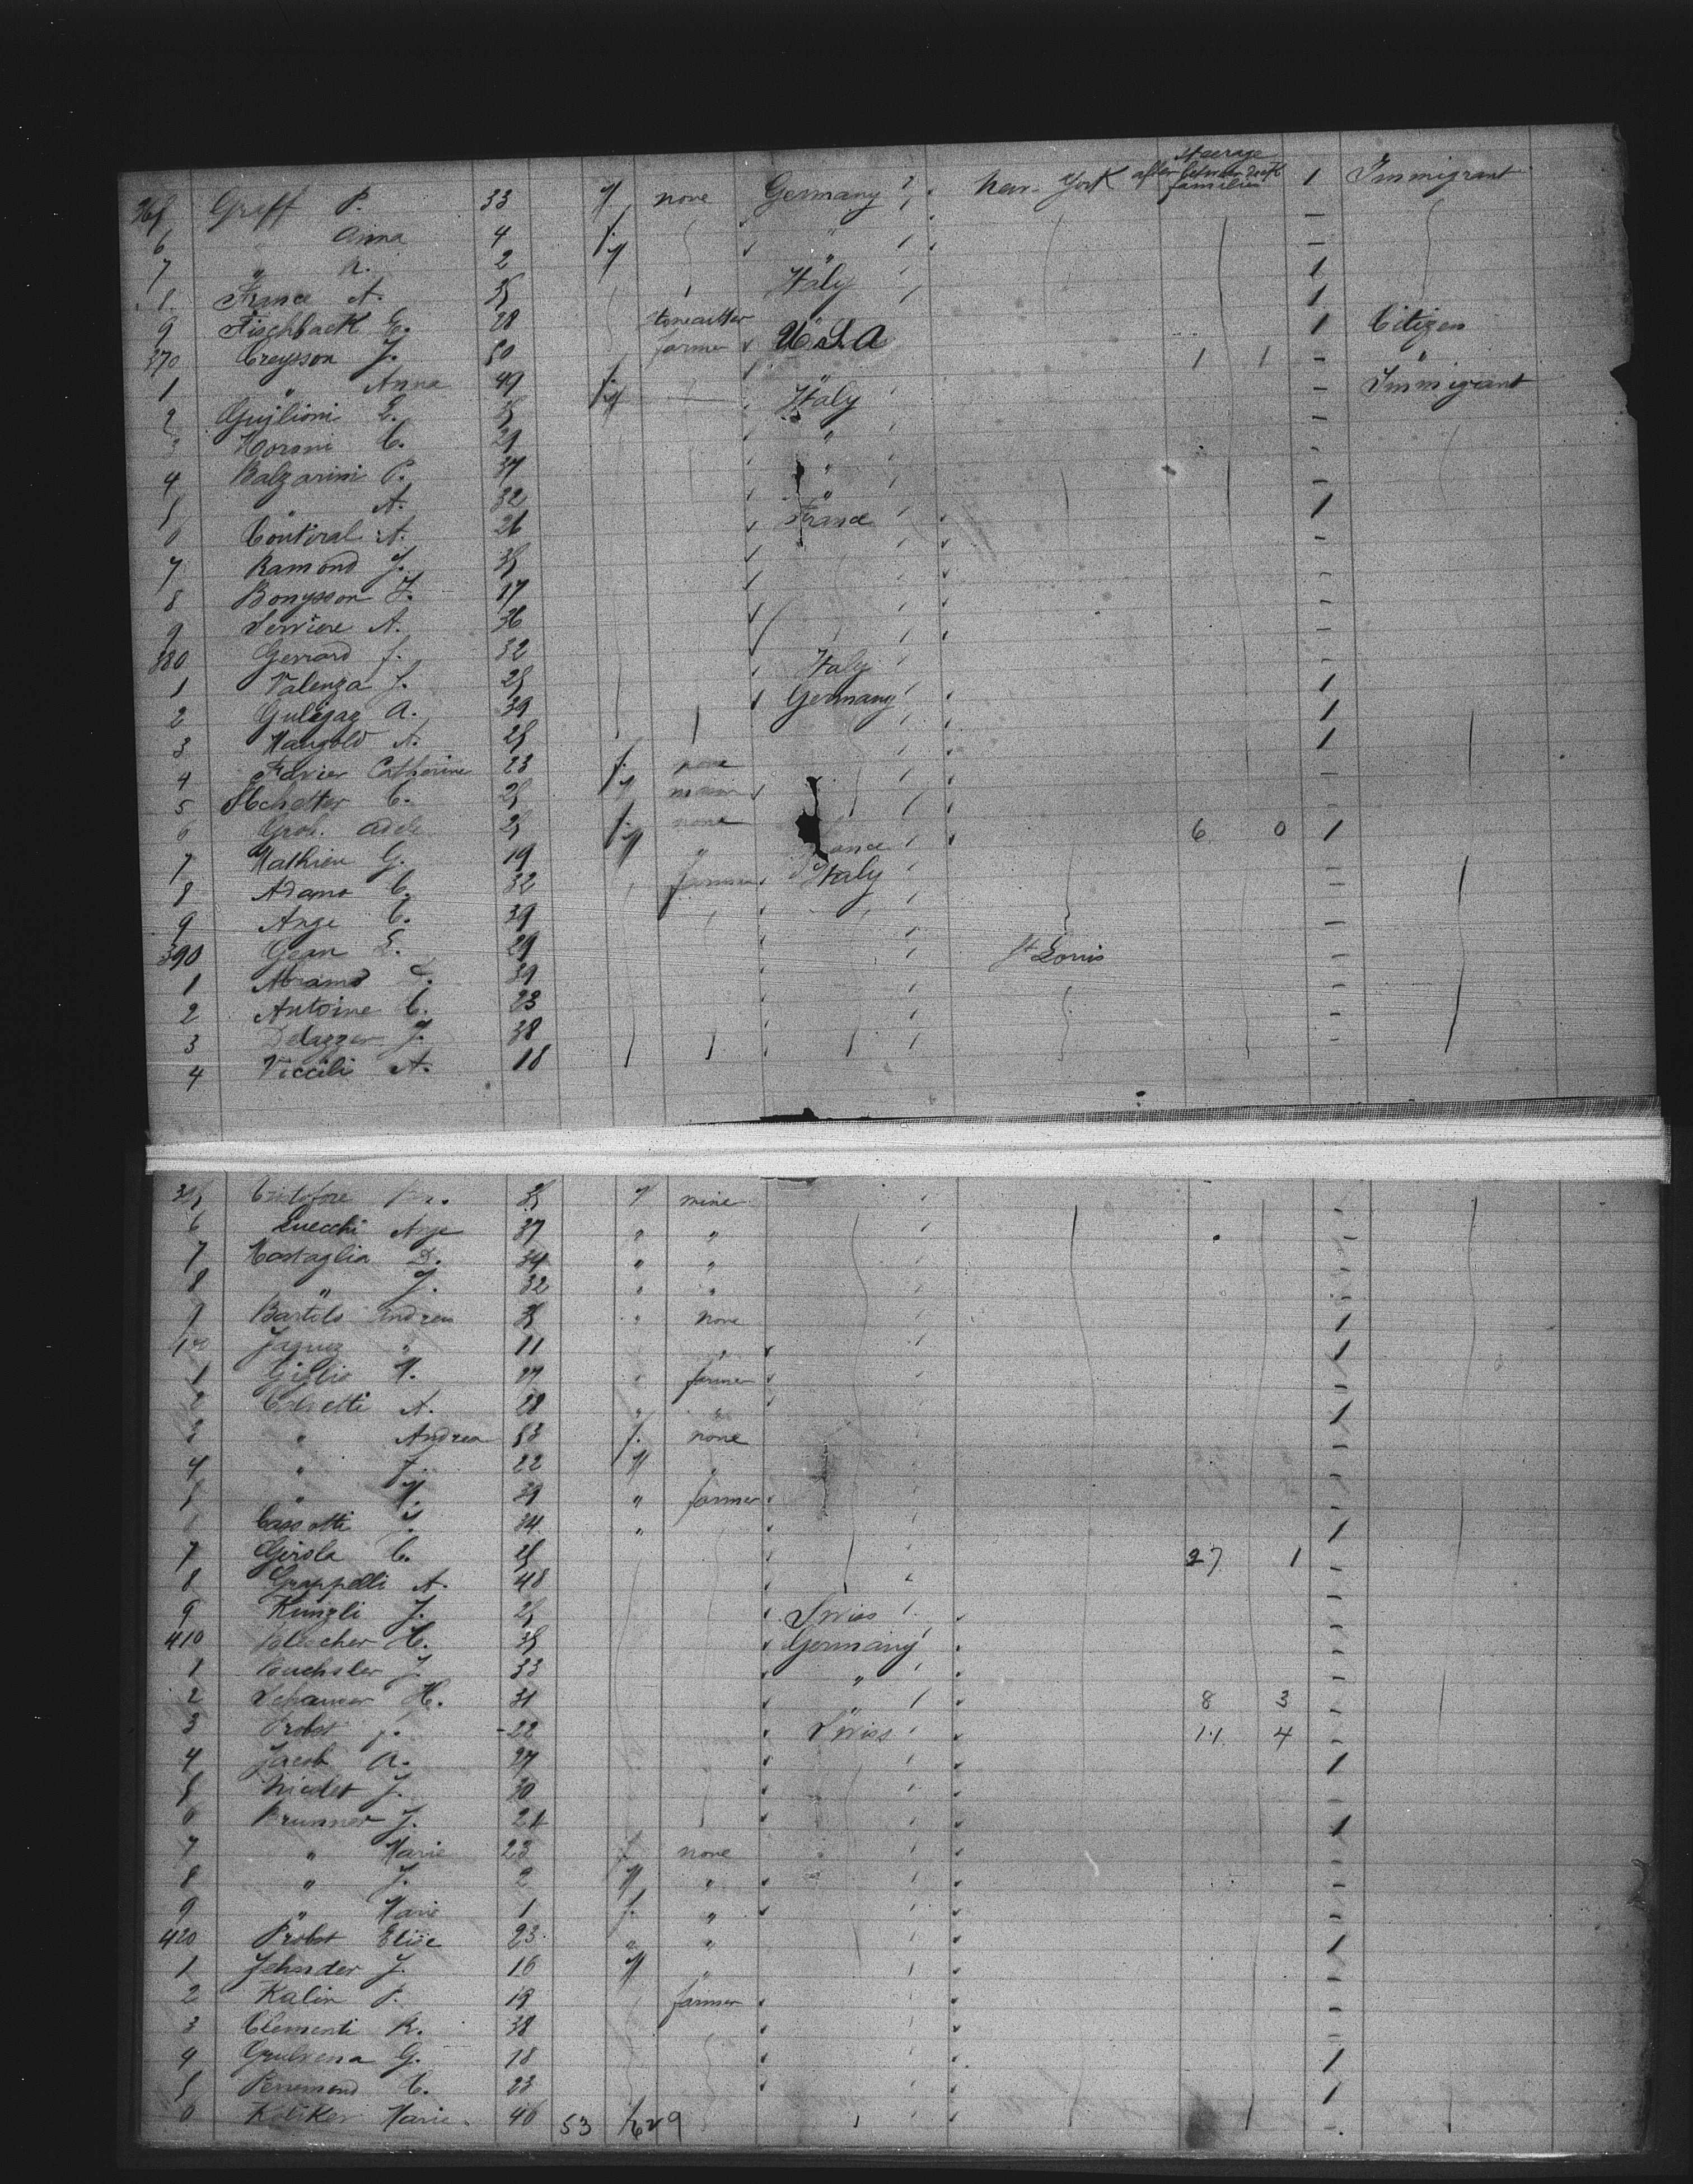 365 Graff P. 33 M none Germany New-York Steerage after between deck families 1 Immigrant
6 " Anna 4 f. "
7 " A. 2 M "
8 Franci A. 35 Italy 1
9 Fischback E. 28 stonecutter 1
370 Creysson J. 50 farmer U.S.A 1 Citizen
1 " Anna 49 f. " 1 1 - "
2 Guglioni E. 35 M Italy - Immigrant
3 Moroni C. 29 " -
4 Balzarini P. 37 " -
5 " A. 32 " -
6 Coutiral A. 26 France 1
7 Ramond J. 35 -
8 Bonysson J. 17 -
9 Serviere A. 36 -
380 Gerrard J. 32 -
1 Valenza J. 25 Italy -
2 A. 39 Germany 1
3 Mangold A. 25 1
4 Favier Catherine 23 f. none 1
5 C. 25 M -
6 Gros. Adele 25 f. none
7 Mathieu G. 19 M " France 6 0 1
8 Adamo C. 32 farmer Italy -
9 Ange C. 39 -
390 Gean E. 29 -
1 Abramo 39 St Louis -
2 Antoine C. 23 -
3 Delazzer J. 38 -
4 Viccili A. 18 -
395 Cristofore 35 M mine -
6 Luecchi Ange 37 " " -
7 Mastaglia D. 34 " " -
8 " J. 32 " " -
9 Bartolo Andrea 35 " none 1
400 " 11 " " 1
1 Giulio M. 27 " farmer -
2 Calvetti A. 28 " " 1
3 " Andrea 53 f. none -
4 " J. 22 M " -
5 " M. 39 " farmer -
6 Cassotti 34 " 1
7 Girola C. 25 27 1 -
8 Grappelli A. 48 -
9 Künzli J. 25 Swiss -
410 Blescher C. 35 Germany -
1 Buchsler J. 33 " -
2 H. 31 " 8 3 -
3 Probst J. 22 Swiss 14 4 -
4 Jacob A. 27 1
5 J. 30 -
6 Brunner J. 24 1
7 " Marie 23 f. none -
8 " J. 2 M " -
9 " Marie 1 f. " -
420 Probst Elise 23 " " 1
1 Zehnder J. 16 M " -
2 Kalin P. 19 farmer -
3 Clementi R. 38 -
4 G. 18 1
5 C. 23 1
6 Marie 46 -
53 629